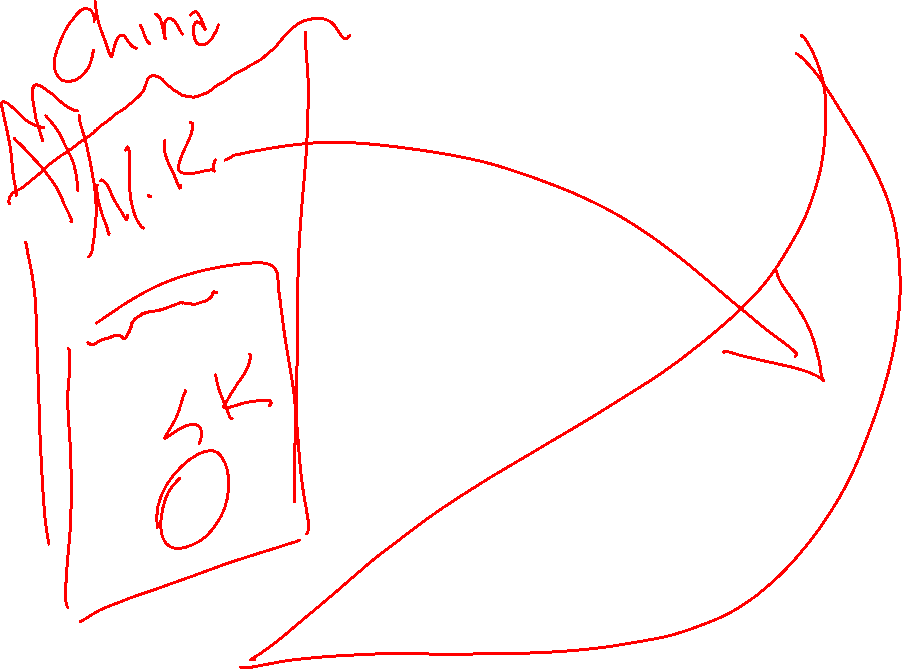 China
N.K.
SK